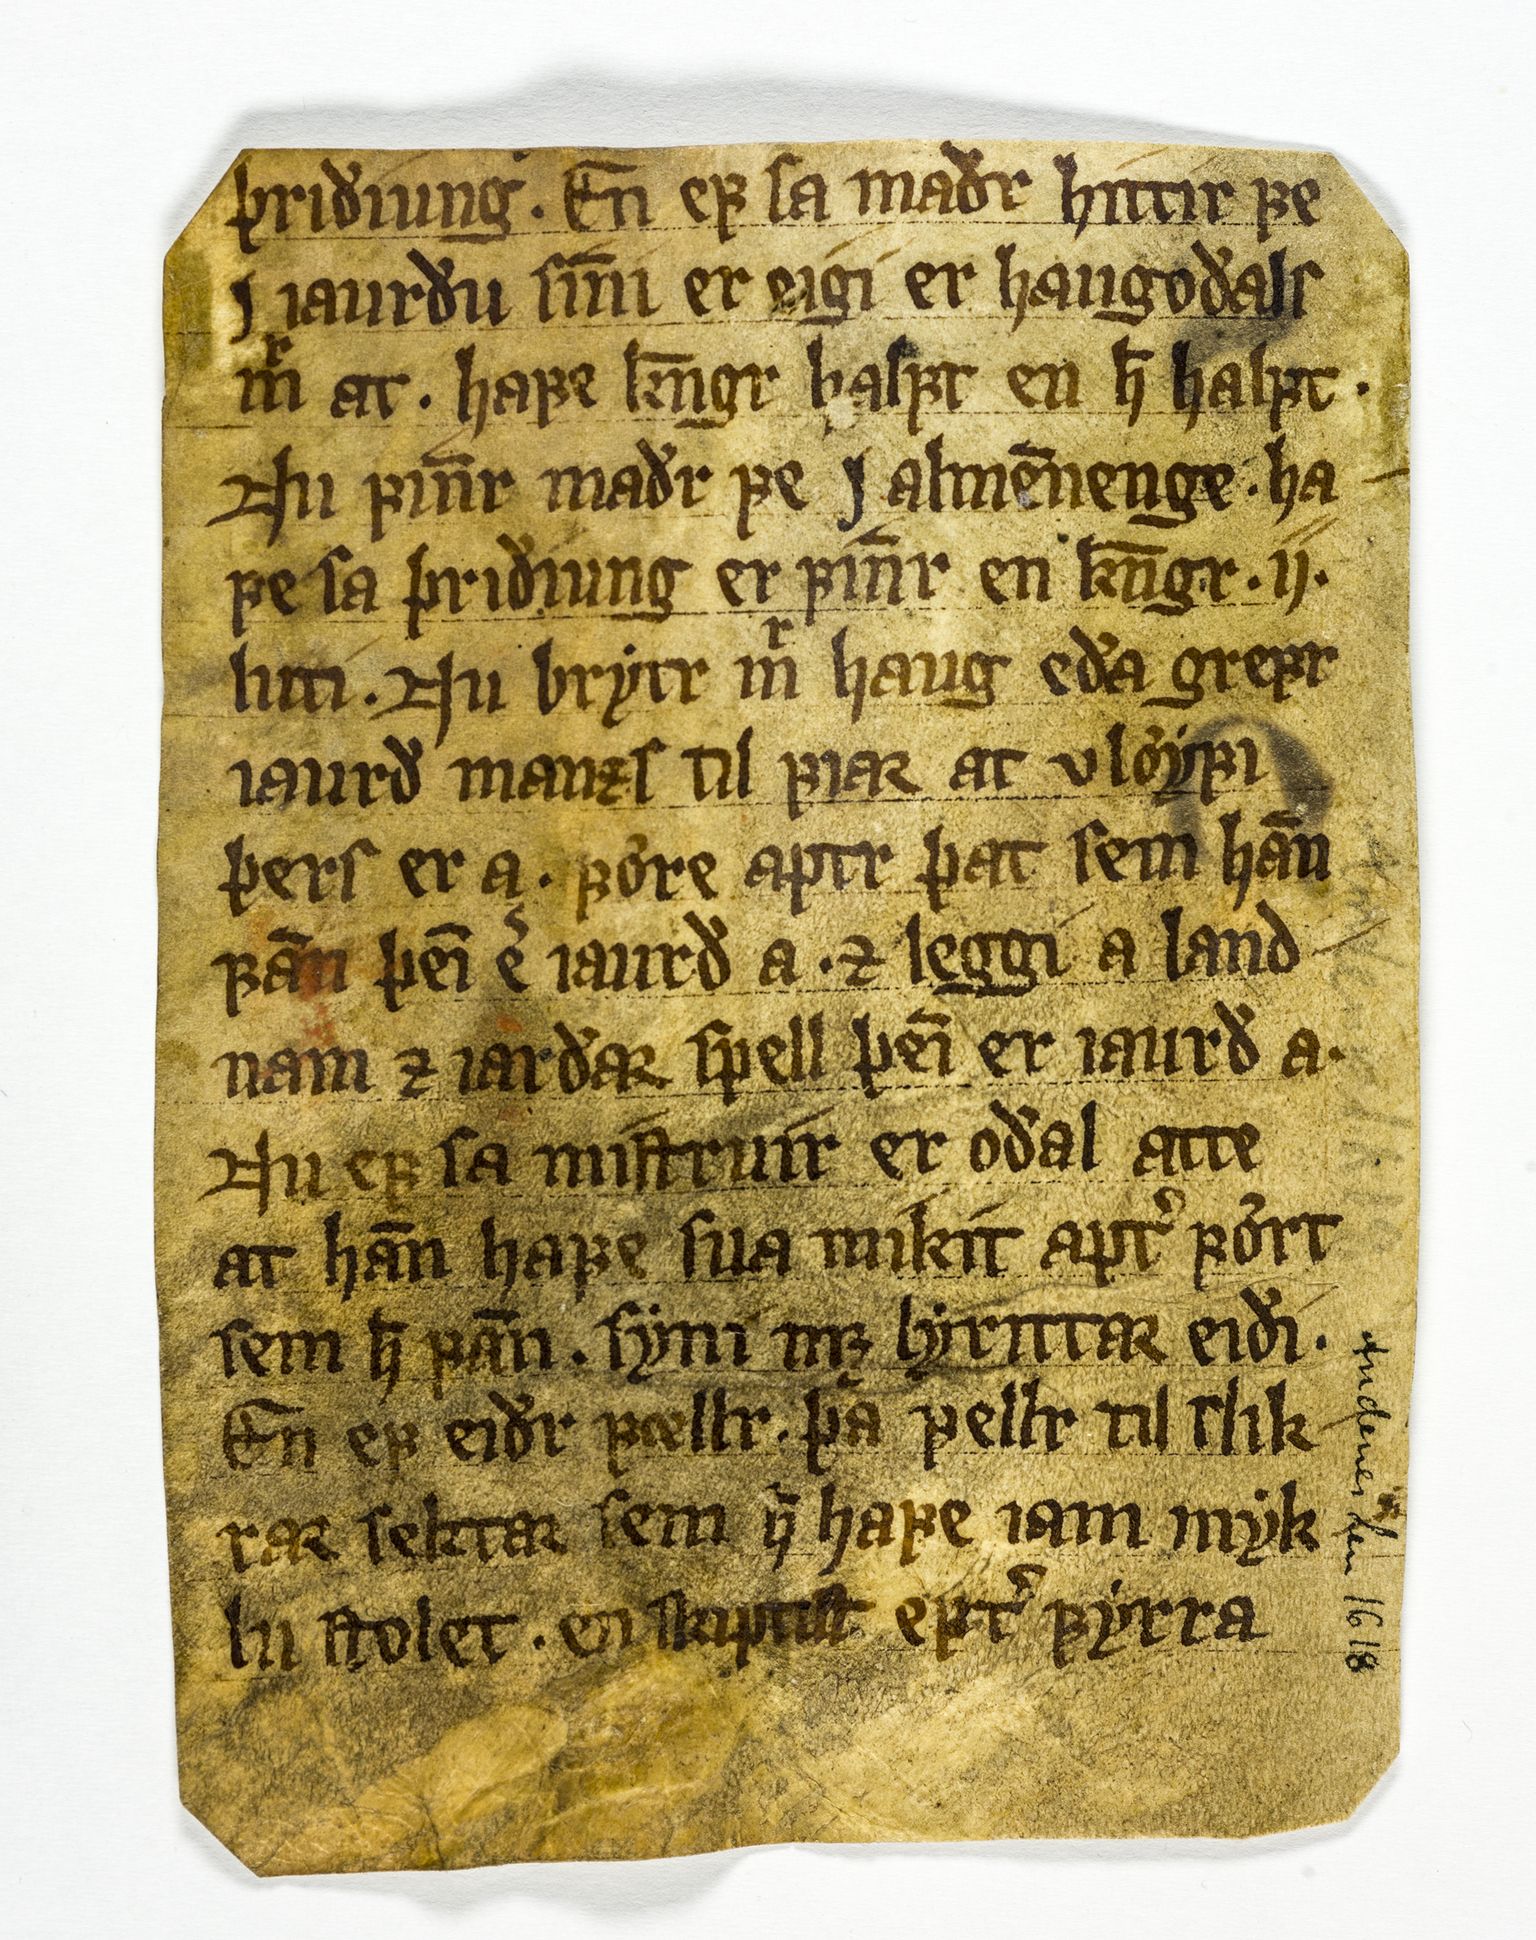 þriðiung. En̄ ef sa maðr hittir fe
j iaurðu sin̄i er eigi er haugoðals
mͬ at. hafe kn̄gr halft en h̄ halft.
Nu fin̄r maðr fe j almēnenge. ha
fe sa þriðiung er fin̄r en kn̄gr. ij.
luti. Nu brytr mͬ haug eða grefr
iaurð manzs til fiar at vløyfi
þers er a. føre aptr þat sem hān
fān þei̅ er iaurð a. ⁊ leggi a land
nam ⁊ iarðar spell þei̅ er iaurð a.
Nu ef sa mistruir er oðal atte
at hān hafe sua mikit apt͛ført
sem h̄ fān. syni mꝫ lyrittar eiði.
En̄ ef eiðr fællr. þa fellr til slik
rar sektar sem h̄ hafe iam myk
lu stolet. en skiptist eft͛ fyrra
Andenes len 1618